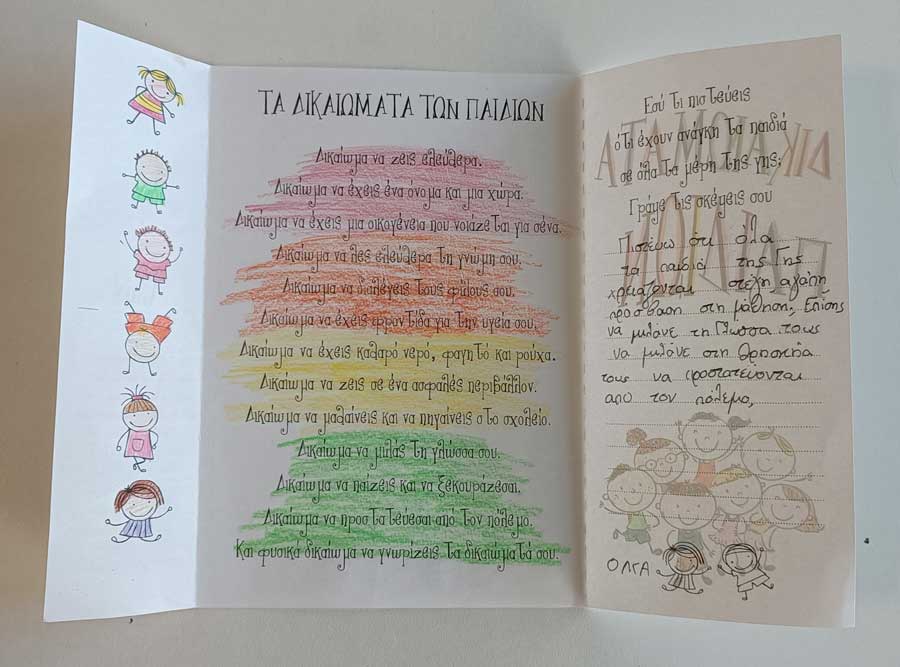 ΤΑ ΔΙΚΑΙΩΜΑΤΑ ΤΩΝ ΠΑΙΔΙΩΝ
Δικαίωμα να ζεις ελεύθερα.
Δικαίωμα να έχεις ένα όνομα και μια χώρα.
Δικαίωμα να έχεις μια οικογένεια που νοιάζεται για σένα.
Δικαίωμα να λες ελεύθερα τη γνώμη σου.
Δικαίωμα να διαλέγεις τους φίλους σου.
Δικαίωμα να έχεις φροντίδα για την υγεία σου.
Δικαίωμα να έχεις καθαρό νερό, φαγητό και ρούχα.
Δικαίωμα να ζεις σε ένα ασφαλές περιβάλλον.
Δικαίωμα να μαθαίνεις και να πηγαίνεις στο σχολείο.
Δικαίωμα να μιλάς τη γλώσσα σου.
Δικαίωμα να παίζεις και να ξεκουράζεσαι.
Δικαίωμα να προστατεύεσαι από τον πόλεμο.
Και φυσικά δικαίωμα να γνωρίζεις τα δικαίωματά σου.
Εσύ τι πιστεύεις
ότι έχουν ανάγκη τα παιδιά
σε όλα τα μέρη της γης;
Γράψε τις σκέψεις σου
Πιστευω ότι όλα
τα παιδιά της Γης
χρειάζονται στέγη, αγάπη
πρόσβαση στη μάθηση, Επίσης
να μιλάνε τη Γλωσσα τους
να μιλάνε στη θρησκεία
τους να προστατεύονται
από τον πόλεμο,
ΟΛΓΑ
ΔΙΚΑΙΩΜΑΤΑ
ΠΑΙΔΙΩΝ